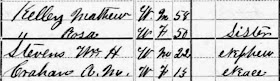 Kelley Mathew W M 58
" Rosa W F 50 Sister
Stevens Wm H W M 22 Nephew
Graham A. M. W F 15 Neace